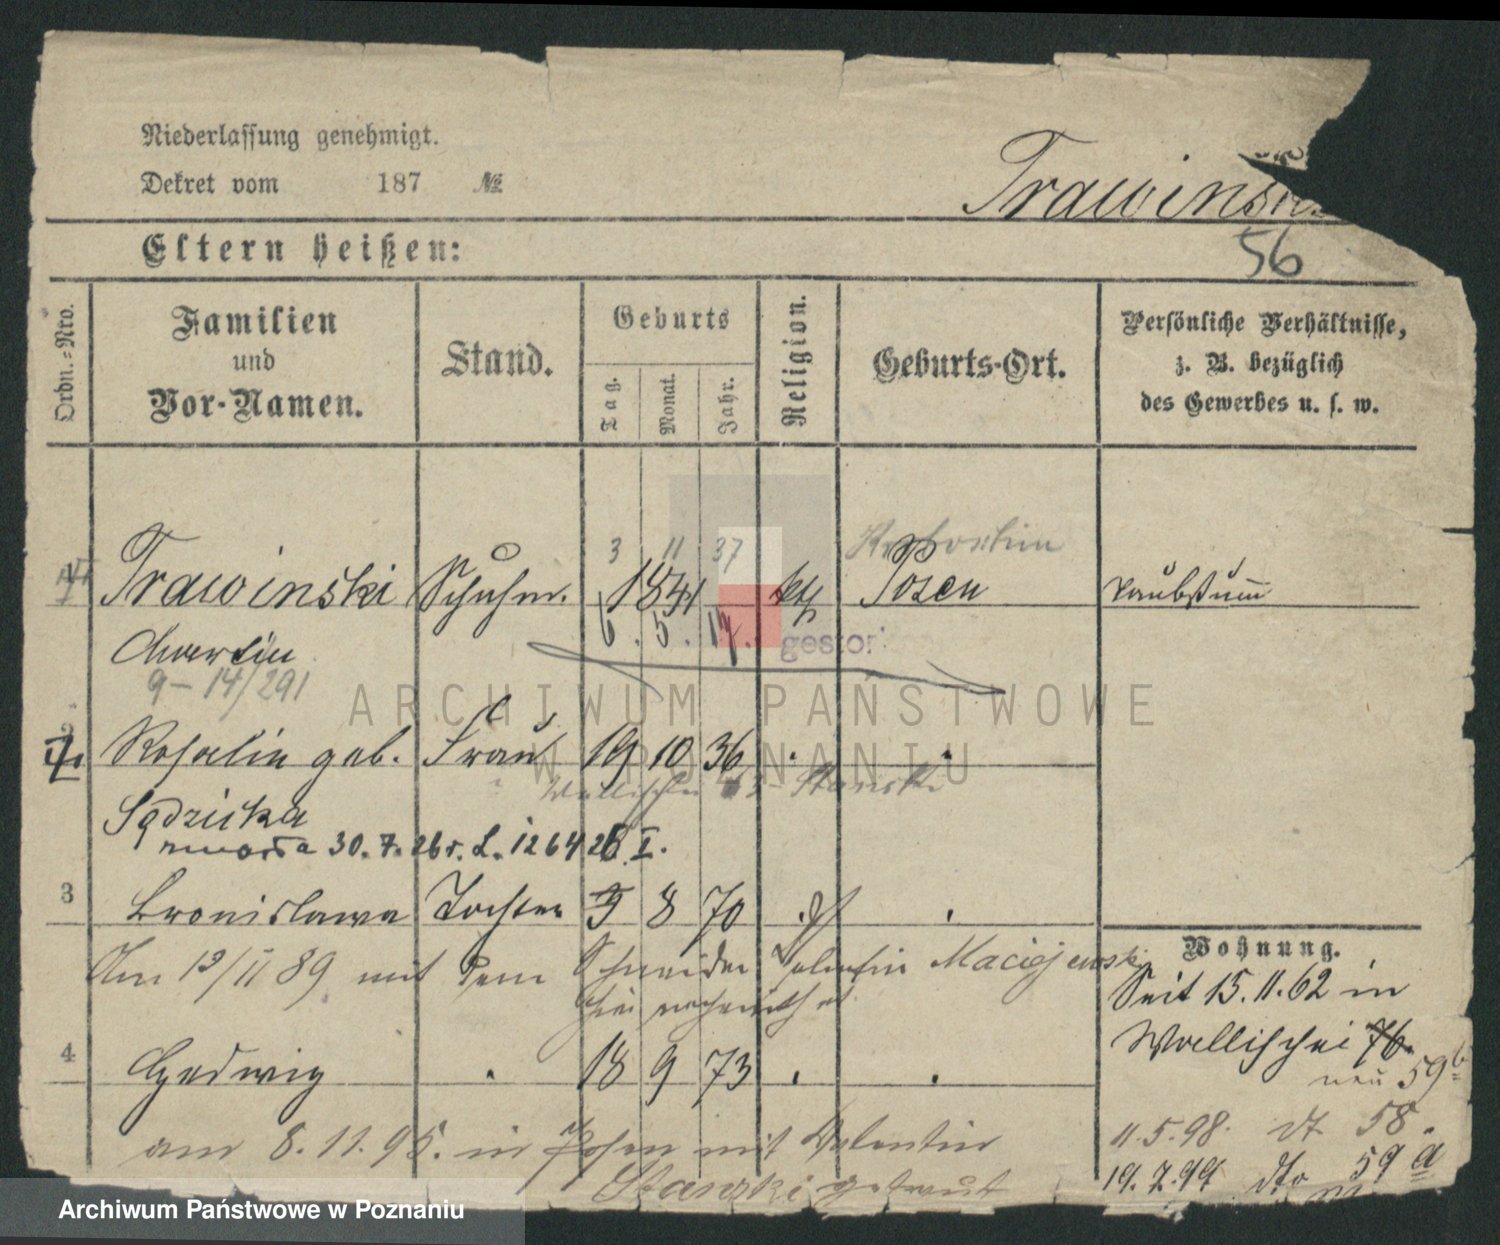 Niederlassung genehmigt.
Dekret vom 187 №
Trawinski
56
Eltern heißen:
Ordn.-Nro.
Familien
und
Vor-Namen.
Stand.
Geburts
Tag.
Monat.
Jahr.
Religion.
Geburts-Ort.
Persönliche Verhältnisse,
z. B. bezüglich
des Gewerbes u. s. w.
3 11 37
1 Trawinski Schuhm. 1841 kth Posen taubstumm
Martin 6. 5. 17.
gestor
9 – 14/291
2 Rosalie geb. Frau 19 10 36
Wallischei Stanski
Sędzicka
zmarła 30. 7. 26 r. L. 1264 26 I.
3 Bronislawa Tochter 9 8 70
Am 13/II 89 mit dem Schneider Valentin Maciejewski
hier verheirathet
4 Hedwig 18 9 73
am 8. 11. 95. in Posen mit Valentin
Stanski getraut
Wohnung.
Seit 15. 11. 62 in
Wallischei 76.
neu 59 b
11. 5. 98. dt 58.
19. 7. 99 dto 59 a
ARCHIWUM PAŃSTWOWE
W POZNANIU
Archiwum Państwowe w Poznaniu